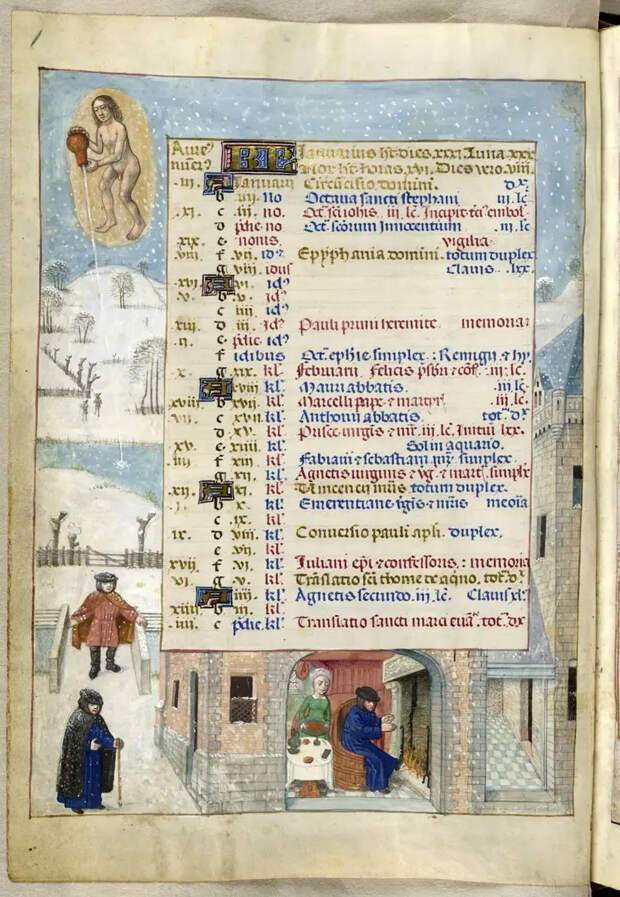 Aure KL Ianuarius ht dies xxxi luna xxx
nuerus Nox ht horas xvi. Dies vero viii.
iii. A Ianuarii Circumcisio domini. dx
b iiii no Octava sancti stephani iii. lc
xi. c iii. no. Oct. sci iohis. iii. lc. Incipit embol
d pdie no Oct scorum innocentum iii. lc
xix. e nonis. vigilia
viii. f vi. id Epyphania domini. totum duplex
g viii. idus Clavis lxx.
xvi. A vi. id
v. b v. id
c iiii id
xiii. d iii. id Pauli primi heremite memoria
ii. e pdie id
f idibus Oct. ephie simplex : Remigii & hy
x. g xix. kl Februarii. Felicis psbri & cof. iii. lc.
A xviii kl. Mauri abbatis. iii. lc
xviii b xvii. kl. Marcelli pape & martyr. iii. lc.
vii. c xvi. kl. Anthonii abbatis. tot. dx
d xv. kl. Prisce virgis & mr. iii. lc. Initiu lxx.
xv. e xiiii. kl. Sol in aquario.
iiii f xiii kl. Fabiani & sebastiani mr. simplex
g xii. kl. Agnetis virginis & mart. simplx
xii. A xi. kl. totum duplex.
i. b x. kl. Emerentiane memoia
c ix. kl.
ix. d viii. kl. Conversio pauli apli. duplex.
e vii. kl.
xvii f vi. kl. Iuliani epi & confessoris. : memoria
vi. g v. kl. Translatio sci thome de aqino. tot. dx
A iiii. kl. Agnetis secundo. iii. lc. Clavis xl
xiiii b iii. kl.
iii. c pdie. kl. Translatio sancti marci eua. tot. dx